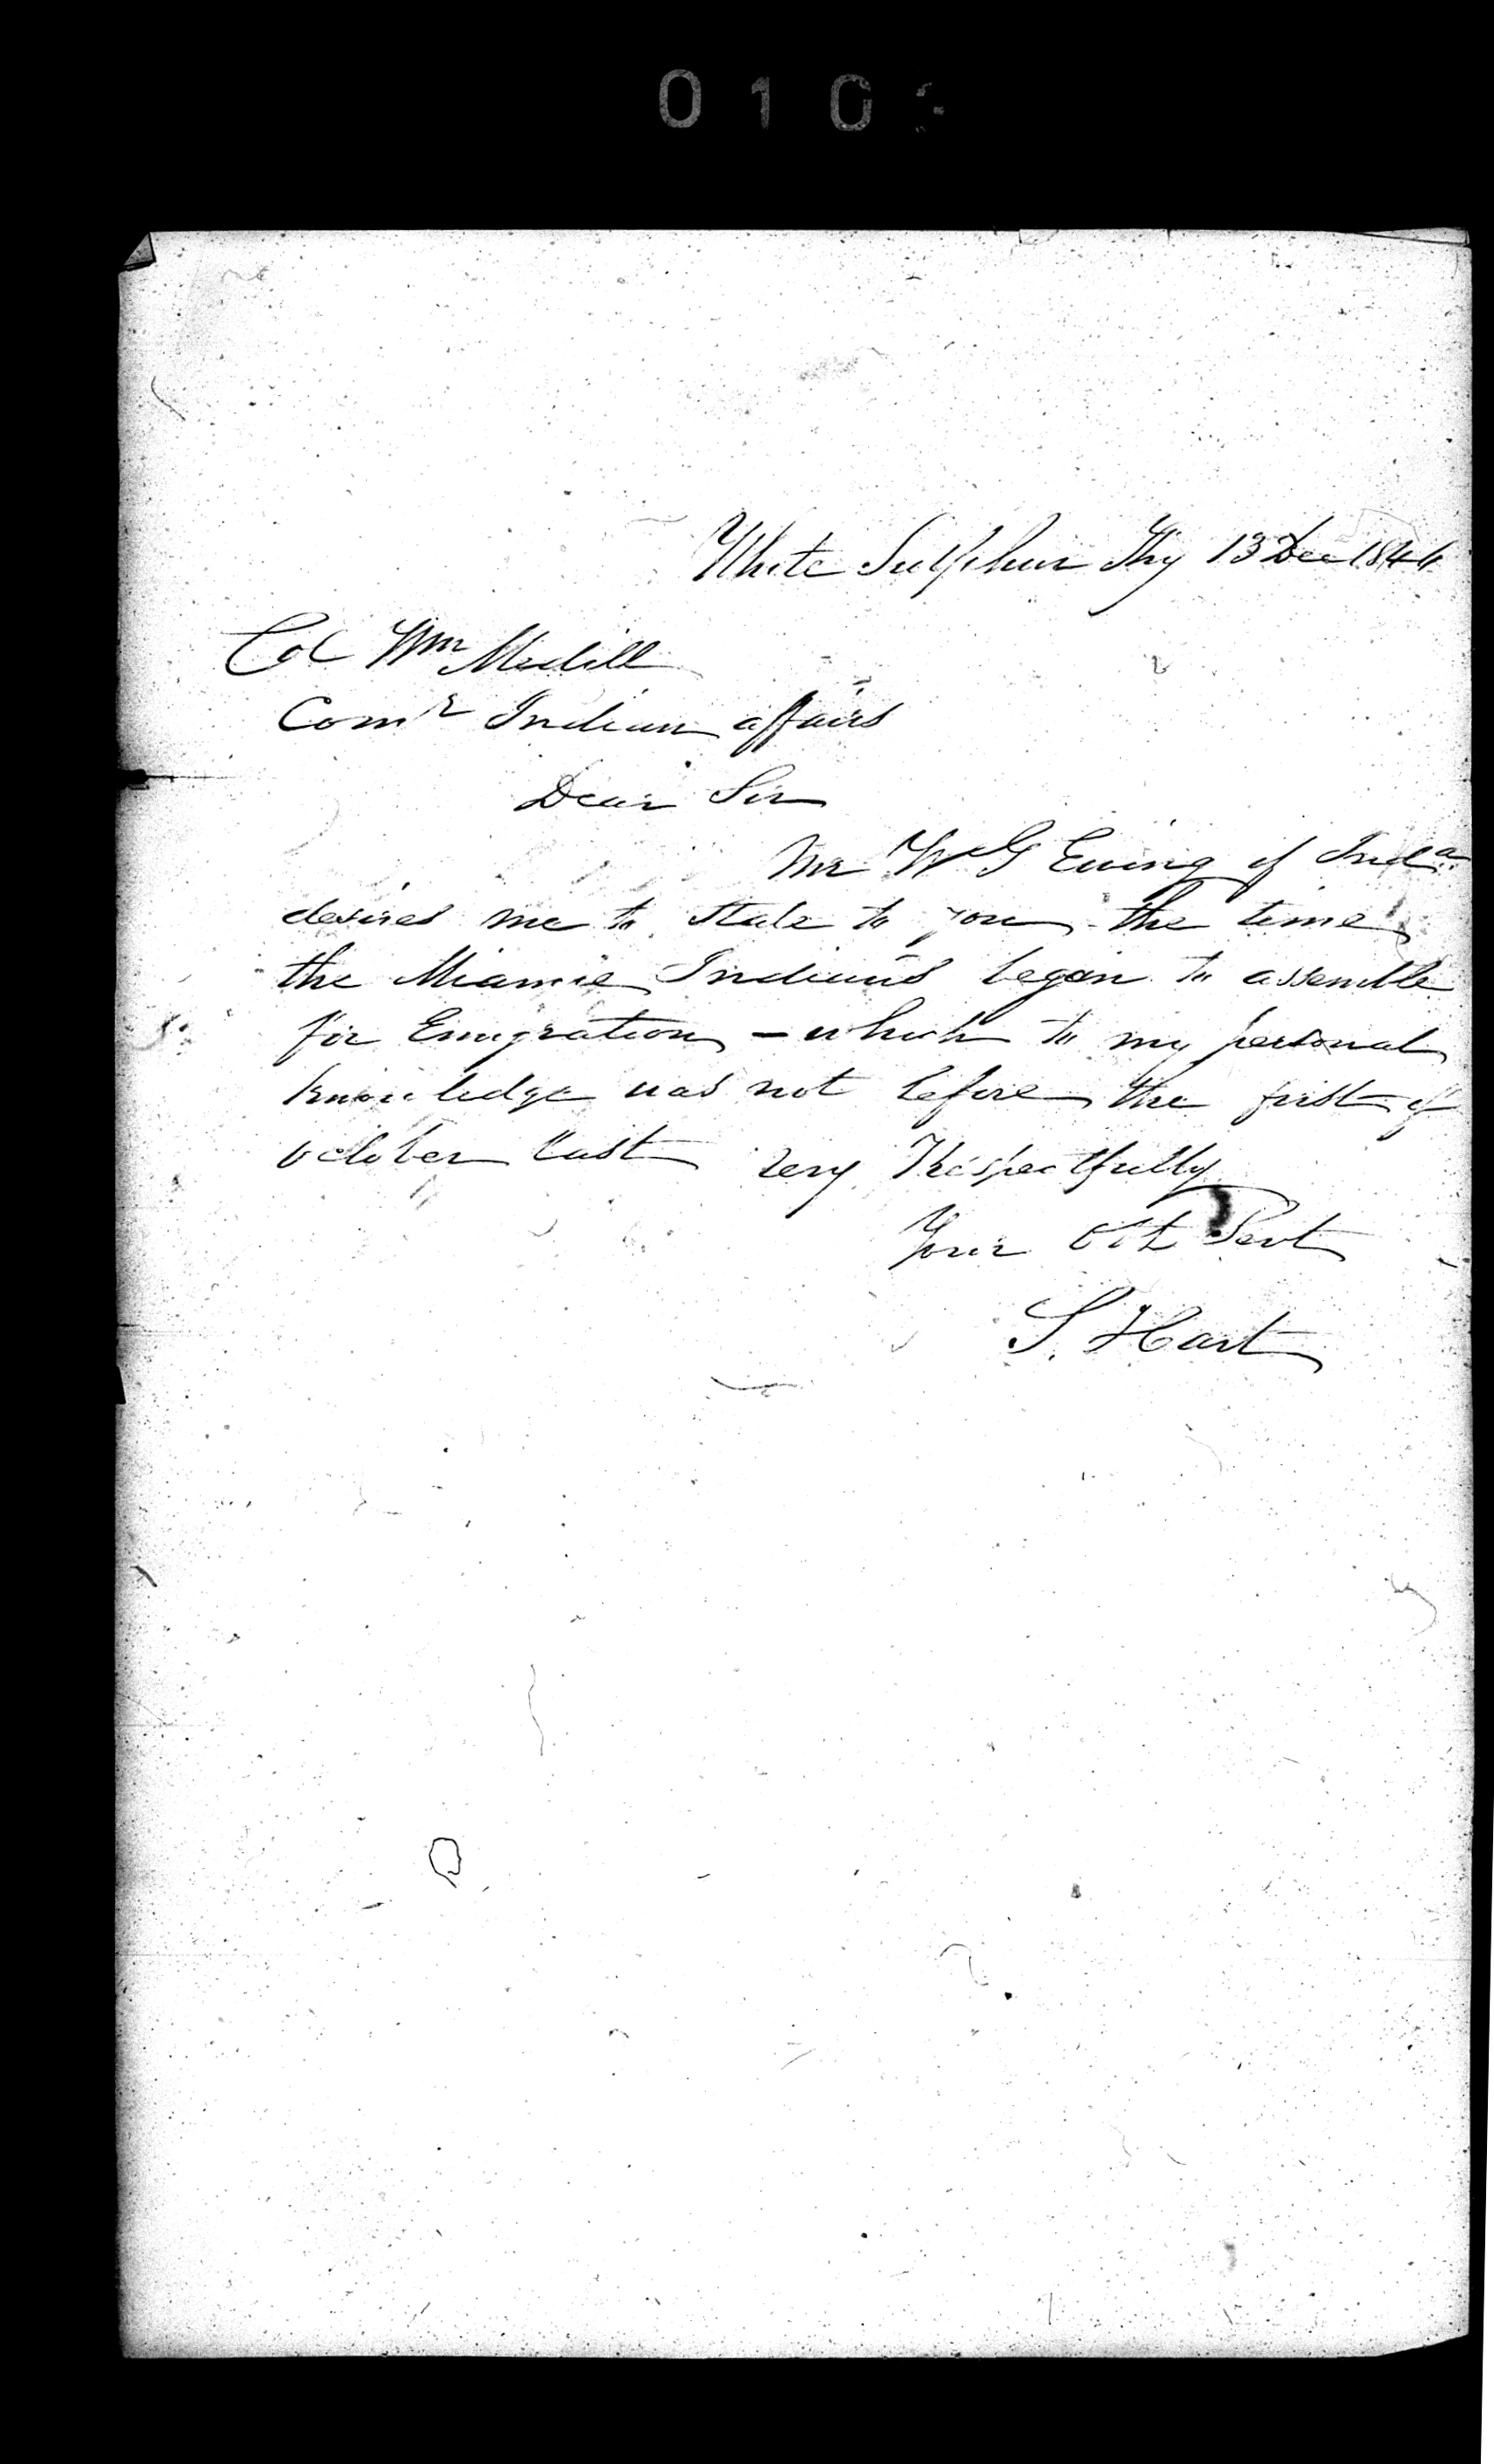 010
White Sulphur Ky 13 Dec 1846
Col Wm Medill
Comr Indian affairs
Dear Sir
Mr W G Ewing of Inda
desires me to state to you the time
the Miamie Indians began to assemble
for Emigration - which to my personal
knowledge was not before the first of
october last Very Respectfully
Your Obt Servt
S. Hart